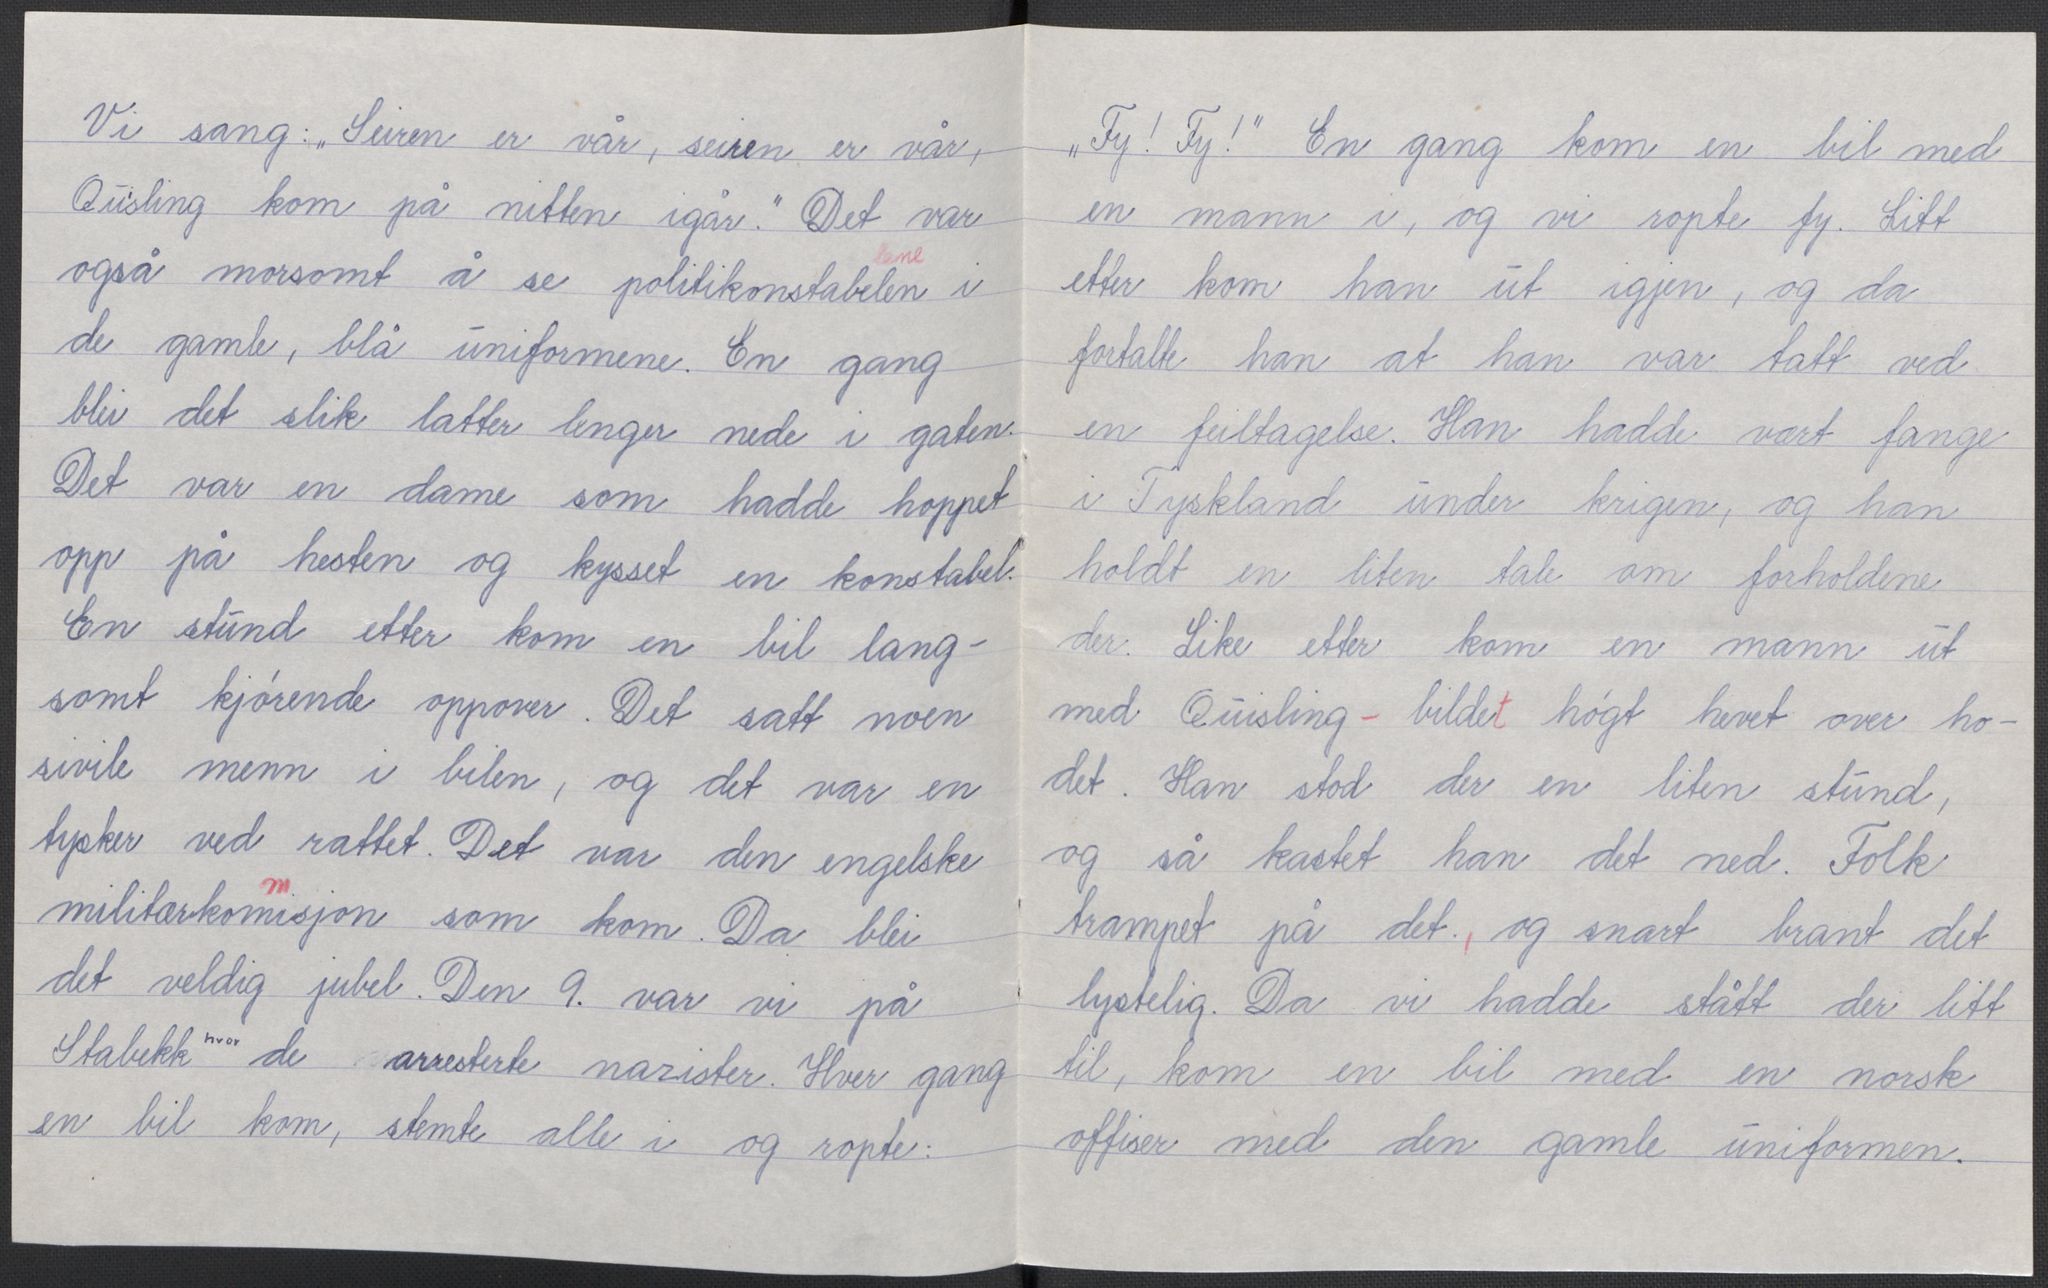 Vi sang: „Seiren er vår, seiren er vår,
Quisling kom på nitten igår." Det var
lene
også morsomt å se politikonstabelen i
de gamle, blå uniformene. En gang
blei det slik latter lenger nede i gaten.
Det var en dame som hadde hoppet
opp på hesten og kysset en konstabel.
En stund etter kom en bil lang-
somt kjórende oppover. Det satt noen
sivile menn i bilen, og det var en
tysker ved rattet. Det var den engelske
m
militærkomisjon som kom. Da blei
det veldig jubel. Den 9. var vi på
Stabekk hvor de arresterte nazister. Hver gang
en bil kom, stemte alle i og ropte:
„Fy! Fy!" En gang kom en bil med
en mann i, og vi ropte fy. Litt
etter kom han ut igjen, og da
fortalte han at han var tatt ved
en feiltagelse. Han hadde vært fange
i Tyskland under krigen, og han
holdt en liten tale om forholdene
der. Like etter kom en mann ut
med Quisling-bildet hógt hevet over ho-
det. Han stod der en liten stund,
og så kastet han det ned. Folk
trampet på det., og snart brant det
lystelig. Da vi hadde stått der litt
til, kom en bil med en norsk
offiser med den gamle uniformen.